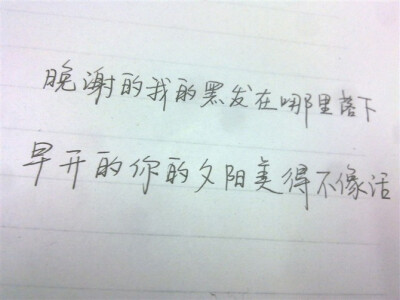 晚谢的我的黑发在哪里落下
早开的你的夕阳美得不像话